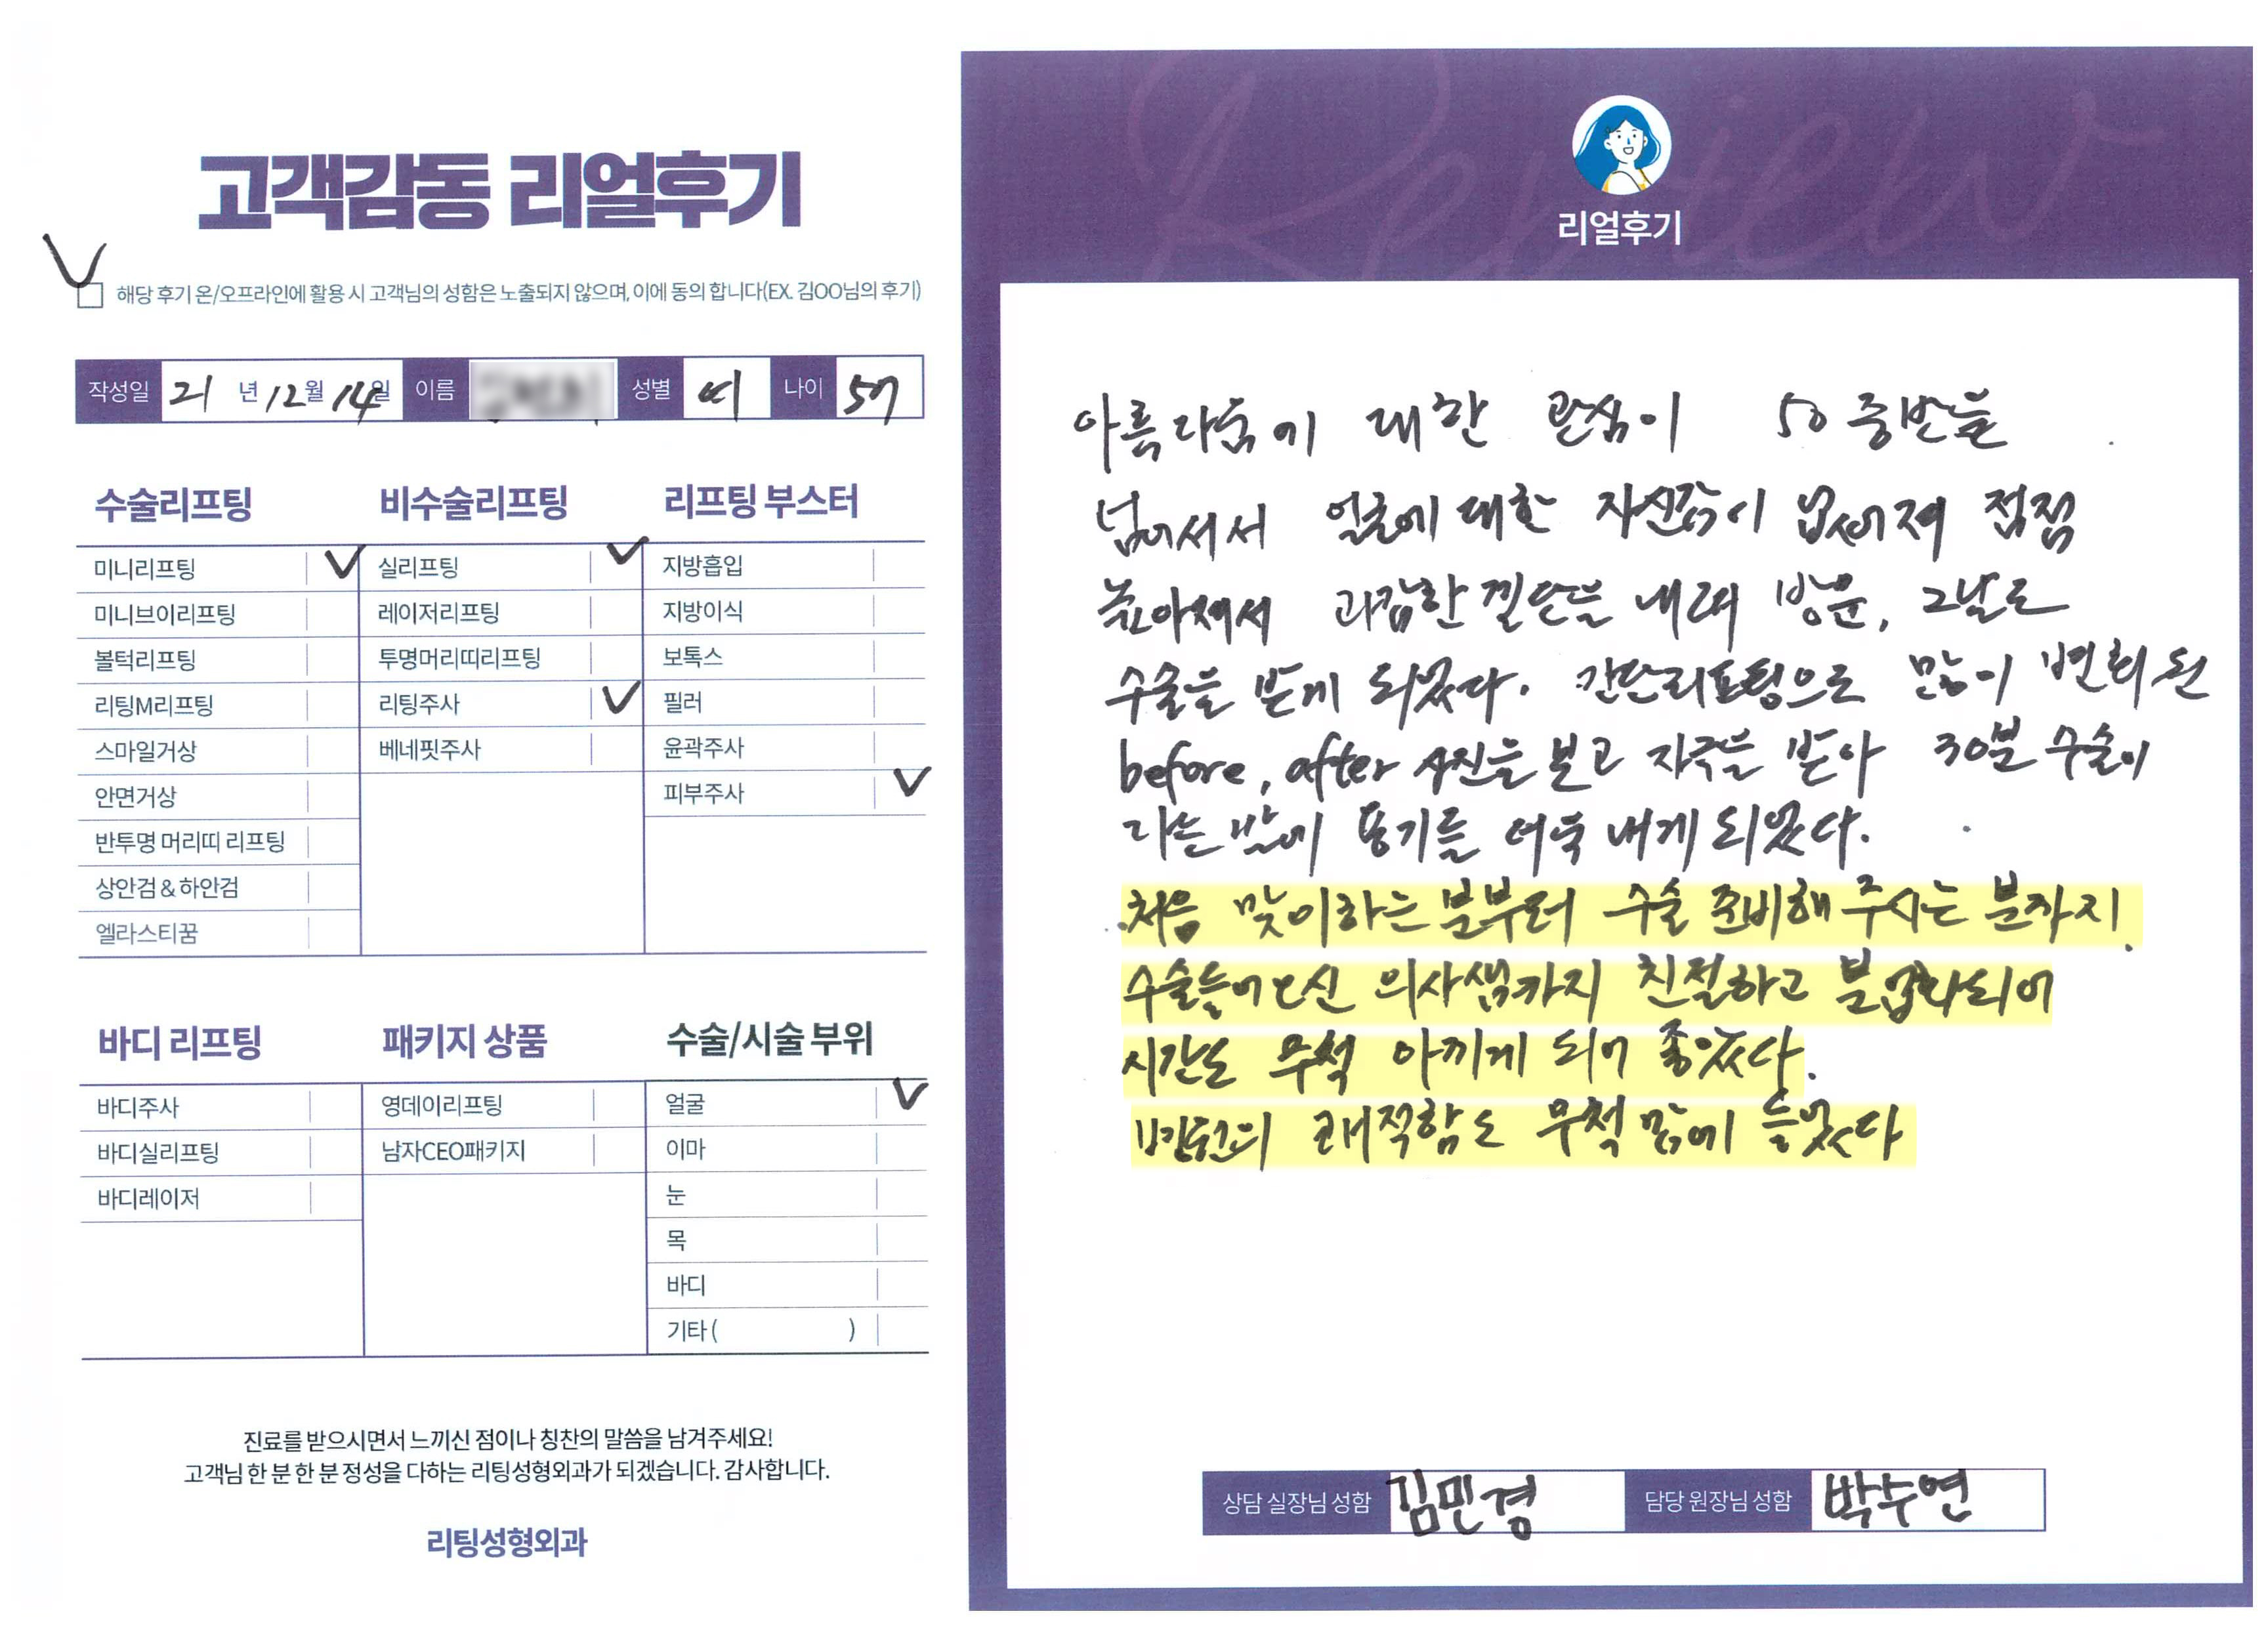 고객감동 리얼후기
해당 후기 온/오프라인에 활용 시 고객님의 성함은 노출되지 않으며, 이에 동의 합니다(EX. 김OO님의 후기)
작성일 21년 12월 14일 이름 성별 여 나이 57
수술리프팅
미니리프팅
미니브이리프팅
볼턱리프팅
리팅M리프팅
스마일거상
안면거상
반투명 머리띠 리프팅
상안검 & 하안검
엘라스티꿈
비수술리프팅
실리프팅
레이저리프팅
투명머리띠리프팅
리팅주사
베네핏주사
리프팅 부스터
지방흡입
지방이식
보톡스
필러
윤곽주사
피부주사
바디 리프팅
바디주사
바디실리프팅
바디레이저
패키지 상품
영데이리프팅
남자CEO패키지
수술/시술 부위
얼굴
이마
눈
목
바디
기타 ( )
진료를 받으시면서 느끼신 점이나 칭찬의 말씀을 남겨주세요!
고객님 한 분 한 분 정성을 다하는 리팅성형외과가 되겠습니다. 감사합니다.
리팅성형외과
Review
리얼후기
아름다움에 대한 관심이 50중반을
넘어서서 얼굴에 대한 자신감이 없어져 점점
높아져서 과감한 결단을 내려 방문, 그날로
수술을 받게 되었다. 간단리프팅으로 많이 변화된
before, after 사진을 보고 자극을 받아 30분 수술이
라는 말에 용기를 더욱 내게 되었다.
처음 맞이하는 분부터 수술 준비해 주시는 분까지
수술들어오신 의사샘까지 친절하고 분업화되어
시간도 무척 아끼게 되어 좋았다.
병원의 쾌적함도 무척 맘에 들었다
상담 실장님 성함 김민경 담당 원장님 성함 박수연